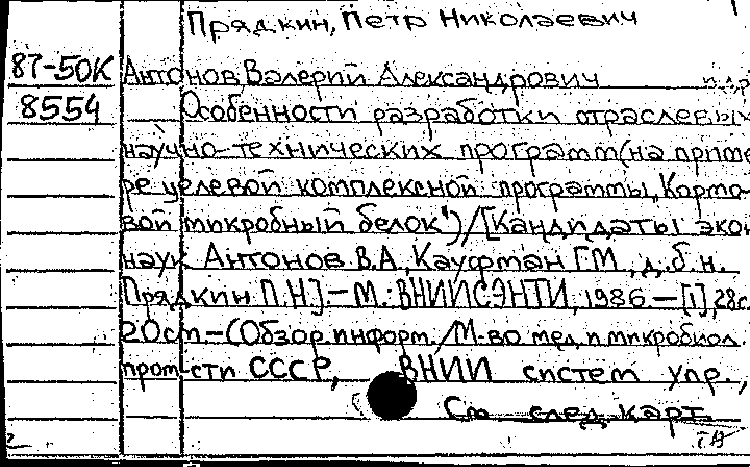 Прядкин, Петр Николаевич
87-50К Антонов, Валерий Александрович
8554 Особенности разработки отраслевых
научно-технических программ (на приме-
ре целевой комплексной программы "Кормо-
вой микробный белок") / [Кандидаты экон.
наук Антонов В.А., Кауфман Г.М., д.б.н.
Прядкин П.Н.]. — М.: ВНИИСЭНТИ, 1986. — [1], 28 с.
20 см. — (Обзор. информ. / М-во мед. и микробиол.
пром-сти СССР, ВНИИ систем упр.,
См. след. карт.